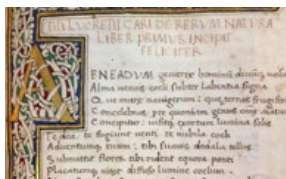 TITI LVCRETI CARI DE RERVM NATVRA
LIBER PRIMVS INCIPIT
FELICITER
AENEADVM genetrix hominū divūq
Alma venus: celi subter labentia signa
Que mare navigerum: que terras
Concelebras: per te quoniam genus omne
Concipitur: visitq exortum lumina solis
Te dea te fugiunt venti te nubila celi
Adventumq tuum: tibi suavis dedala tellus
Submittit flores tibi rident equora ponti
Placatumq nitet diffuso lumine celum